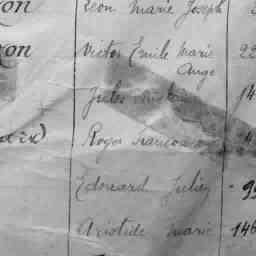 on Léon Marie Joseph
on Victor Emile Marie 22
Ange
Jules 14
aix) Roger
Edouard Julien 99
Aristide Marie 146